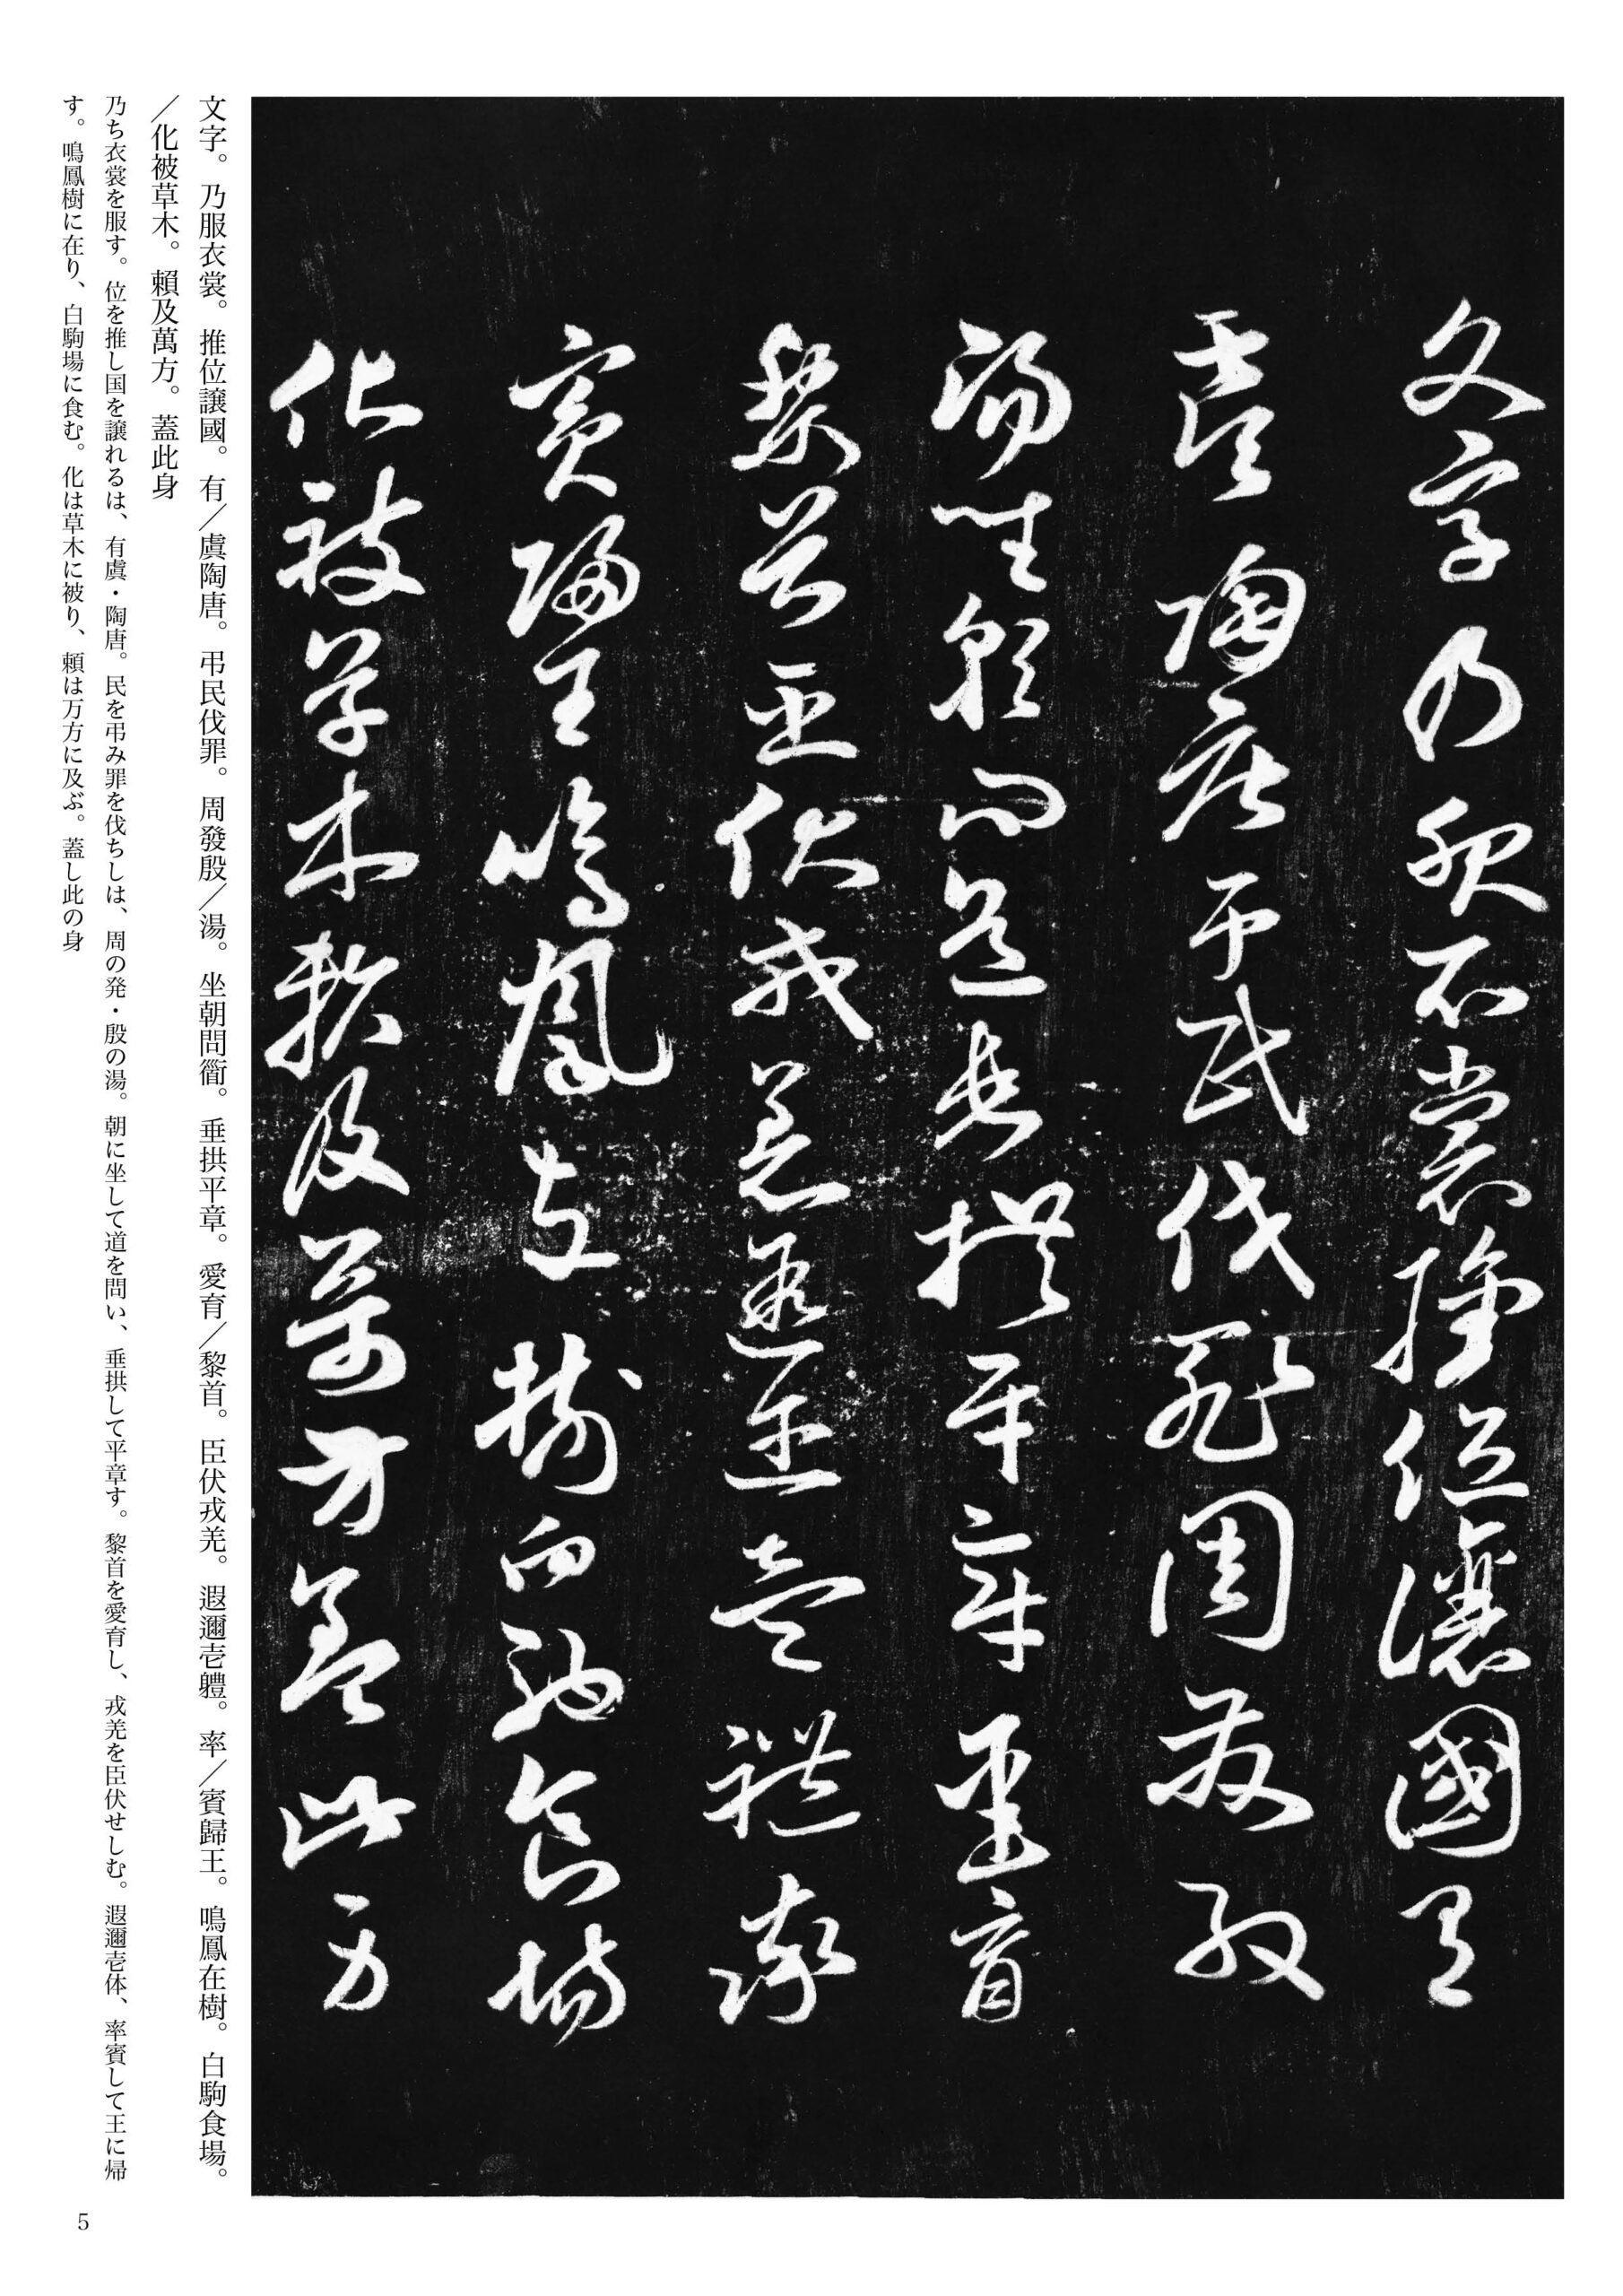 文字乃服衣裳推位讓國有
虞陶唐弔民伐罪周發殷
湯坐朝問道垂拱平章愛育
黎首臣伏戎羌遐邇壹體率
賓歸王鳴鳳在樹白駒食場
化被草木賴及萬方蓋此身
文字。乃服衣裳。推位譲國。有／虞陶唐。弔民伐罪。周發殷／湯。坐朝問衟。垂拱平章。愛育／黎首。臣伏戎羌。遐邇壱軆。率／賓歸王。鳴鳳在樹。白駒食場。
／化被草木。賴及萬方。蓋此身
乃ち衣裳を服す。位を推し国を譲れるは、有虞・陶唐。民を弔み罪を伐ちしは、周の発・殷の湯。朝に坐して道を問い、垂拱して平章す。黎首を愛育し、戎羌を臣伏せしむ。遐邇壱体、率賓して王に帰
す。鳴鳳樹に在り、白駒場に食む。化は草木に被り、頼は万方に及ぶ。蓋し此の身
5